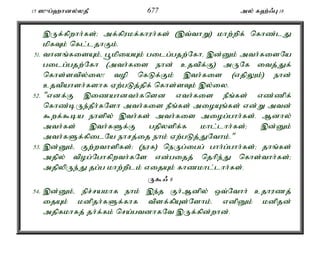 15 ஸுப்ஹானல்லதீ 677 அல் கஹ்ஃபு 18
இருக்கிறார்கள்; அக்கிரமக்காரர்கள் (இவ்வாறு) மாற்றிக் கொண்டது
மிகவும் கெட்டதாகும்.
51. வானங்களையும், பூமியையும் படைப்பதற்கோ, இன்னும் அவர்களையே
படைப்பதற்கோ (அவர்களை நான் உதவிக்கு) அருகே வைத்துக்
கொள்ளவில்லை! வழி கெடுக்கும் இவர்களை (எதிலும்) நான்
உதவியாளர்களாக ஏற்படுத்திக் கொள்ளவும் இல்லை.
52. "எனக்கு இணையானவர்களென எவர்களை நீங்கள் எண்ணிக்
கொண்டிருந்தீர்களோ அவர்களை நீங்கள் அழையுங்கள் என்று அவன்
கூறக்கூடிய நாளில் இவர்கள் அவர்களை அழைப்பார்கள். ஆனால்
அவர்கள் இவர்களுக்கு பதிலளிக்க மாட்டார்கள்; இன்னும்
அவர்களுக்கிடையே நாசத்தை நாம் ஏற்படுத்துவோம்."
53. இன்னும், குற்றவாளிகள்; (நரக) நெருப்பைப் பார்ப்பார்கள்; தாங்கள்
அதில் விழப்போகிறவர்களே என்பதைத் தெரிந்து கொள்வார்கள்;
அதிலிருந்து தப்ப மாற்றிடம் எதையும் காணமாட்டார்கள்.
ருகூஃ 8
54. இன்னும், நிச்சயமாக நாம் இந்த குர்ஆனில் ஒவ்வோர் உதாரணத்
தையும் மனிதர்களுக்காக விளக்கியுள்ளோம். எனினும் மனிதன்
அதிகமாகத் தர்க்கம் செய்பவனாகவே இருக்கின்றான்.